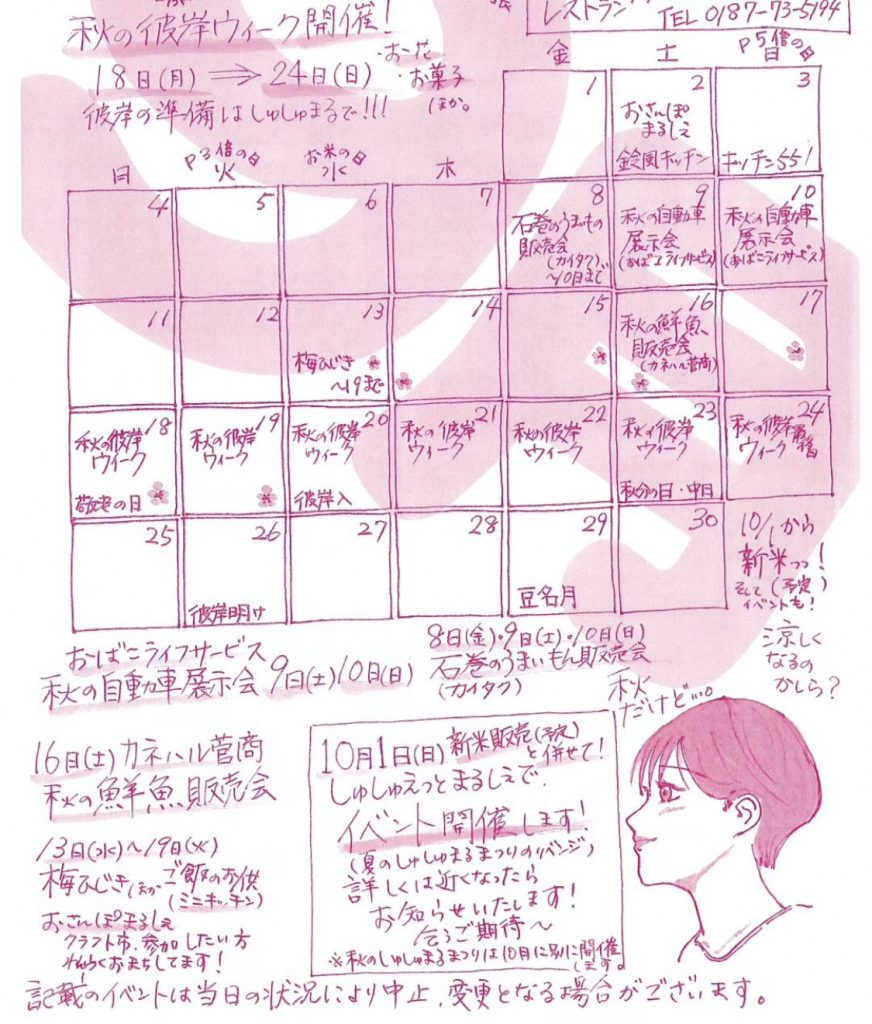 秋の彼岸ウィーク開催!
18日(月)⇒24日(日)
・お花
・お菓子
ほか。
彼岸の準備はしゅしゅまるで!!!
レストラン
TEL 0187-73-5194
金 土 P5倍の日 日
1 2 3
おさんぽ
まるしぇ
鈴風キッチン キッチン551
日 P3倍の日 火 お米の日 水 木
4 5 6 7 8 9 10
石巻のうまいもの
販売会
(カイタク)
〜10日まで
秋の自動車
展示会
(おばこライフサービス)
秋の自動車
展示会
(おばこライフサービス)
11 12 13 14 15 16 17
梅ひじき
〜19まで
秋の鮮魚
販売会
(カネハル菅商)
18 19 20 21 22 23 24
秋の彼岸
ウィーク
敬老の日
秋の彼岸
ウィーク
秋の彼岸
ウィーク
彼岸入
秋の彼岸
ウィーク
秋の彼岸
ウィーク
秋の彼岸
ウィーク
秋分の日・中日
秋の彼岸
ウィーク
25 26 27 28 29 30
彼岸明け
豆名月
10/1から
新米っっ!
そして(予定)
イベントも!
おばこライフサービス
秋の自動車展示会 9日(土)10日(日)
8日(金)・9日(土)・10日(日)
石巻のうまいもん販売会
(カイタク)
秋
だけど…。
涼しく
なるの
かしら?
16日(土)カネハル菅商
秋の鮮魚販売会
13日(水)〜19日(火)
梅ひじきほか ご飯のお供
(ミニキッチン)
おさんぽまるしぇ
クラフト市、参加したい方
れんらくおまちしてます!
10月1日(日)新米販売(予定)
と併せて!
しゅしゅえっとまるしぇで、
イベント開催します!
(夏のしゅしゅまるまつりのリベンジ)
詳しくは近くなったら
お知らせいたします!
乞うご期待〜
※秋のしゅしゅまるまつりは10月に別に開催
します。
記載のイベントは当日の状況により中止、変更となる場合がございます。